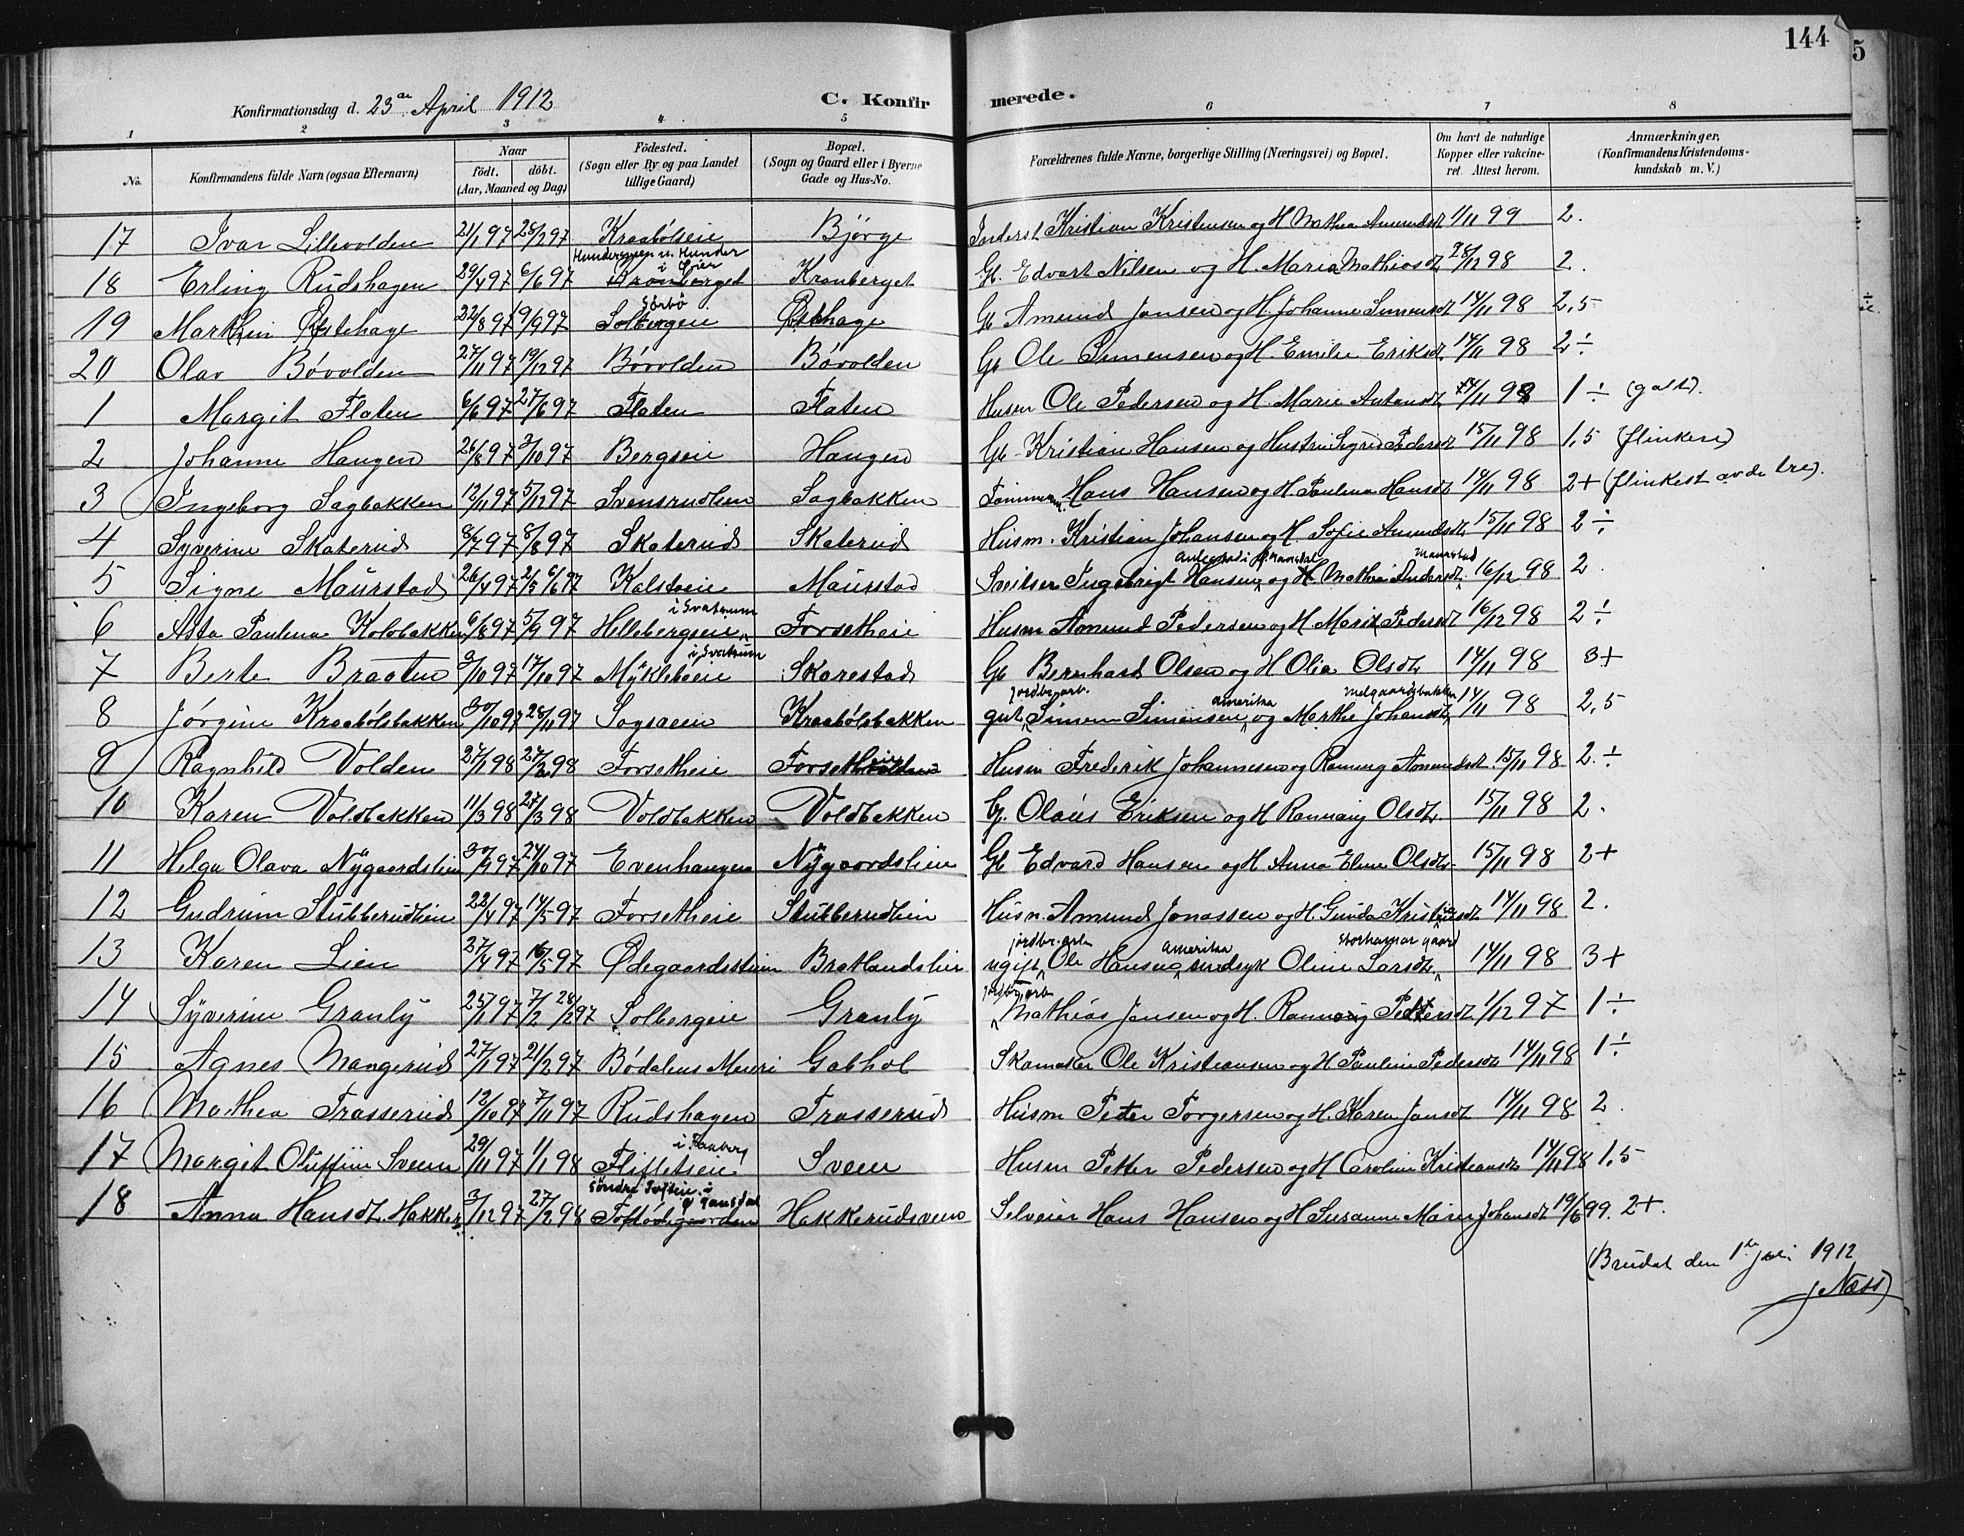 144
5
Konfirmationsdag d. 23de April 1912
C. Konfirmerede.
1 2 3 4 5 6 7 8
No. Konfirmandens fulde Navn (ogsaa Efternavn) Naar født. døbt. (Aar, Maaned og Dag) Fødested. (Sogn eller By og paa Landet tillige Gaard) Bopæl. (Sogn og Gaard eller i Byerne Gade og Hus-No. Forældrenes fulde Navne, borgerlige Stilling (Næringsvei) og Bopæl. Om havt de naturlige Kopper eller vakcineret. Attest herom. Anmærkninger. (Konfirmandens Kristendomskundskab m. V.)
17 Ivar Lillevolden 21/1 97 28/2 97 Kraabølseie Bjørge Inderst Kristian Kristensen og H Mathea Amundsdt 1/11 99 2.
18 Erling Rudshagen 29/4 97 6/6 97 Kronberget Kronberget Gb. Edvart Nilsen og H. Maria Mathiasdt 28/12 98 2.
19 Marthin Østehage 22/8 97 19/9 97 Solbergeie Østhage Gb Amund Jansen og H. Johanne Simensdt 14/11 98 2,5
20 Olav Bøvolden 27/11 97 19/12 97 Bövolden Bövolden Gb Ole Simensen og H. Emilie Eriksdt 14/11 98 2÷
1 Margit Flaten 6/6 97 27/6 97 Flaten Flaten Husm Ole Pedersen og H. Marie Antonsdt 14/11 98 1÷ (galt).
2 Johanne Haugen 26/8 97 3/10 97 Bergseie Haugen Gb. Kristian Hansen og Hustru Sigrid Pedersdt 15/11 98 1,5 (flinkere)
3 Ingeborg Sagbakken 12/11 97 5/12 97 Svensrudlien Sagbakken Tømmerm. Hans Hansen og H Paulina Hansdt 14/11 98 2+ (flinkest av de tre).
4 Syverine Skaterud 8/7 97 8/8 97 Skaterud Skaterud Husm. Kristian Johansen og H. Sofie Amundsdt 15/11 98 2÷
5 Signe Maurstad 26/4 97 6/6 97 Kalstveie Maurstad Sveitser Ingebrigt Hansen og H Mathea Andersdt 16/12 98 2.
6 Asta Paulena Kolobakken 6/8 97 5/9 97 Hellebergseie i Svatsum Forsetheie Husm Amund Pedersen og H Marit Pedersdt 16/12 98 2÷
7 Berte Braaten 3/10 97 17/10 97 Mykleheie i Svatsum Skarestad Gb Bernhard Olsen og H Olia Olsdt 14/11 98 3+
8 Jørgine Kraabølsbakken 30/10 97 28/11 97 Sagaeien Kraabølsbakken jordbr.arb. gift Simen Simensen amerika og Marthe Johansdt 14/11 98 2,5
9 Ragnhild Volden 27/1 98 27/2 98 Forsetheie Husm Frederik Johannesen og Rannveig Amundsdt 15/11 98 2.÷
10 Karen Voldbakken 11/3 98 27/3 98 Voldbakken Voldbakken G. Olaus Eriksen og H Rannveig Olsdt 15/11 98 2.
11 Helga Olava Nygaardslien 30/9 97 24/10 97 Evenhaugen Nygaardslien Gb Edvard Hansen og H. Anna Eline Olsdt 15/11 98 2+
12 Gudrun Stubberudlien 22/4 97 14/5 97 Forsetheie Stubberudlien Husm. Amund Jonassen og H Gunda Kristiansdt 14/11 98 2.
13 Karen Lien 27/4 97 16/5 97 Ødegaardsstuen Bratlandslien jordbr.arb. ugift Ole Hansen amerika Oline Larsdt Storhamar gaard 14/11 98 3+
14 Syverine Granly 25/1 97 7/2 28/2 97 Solbergeie Granly Jordbr.arb. Mathias Jansen og H. Rannveig Pedersdt 1/12 97 1÷
15 Agnes Mangerud 27/1 97 21/2 97 Bødalens Meieri Gabhol Skomaker Ole Kristiansen og H Pauline Pedersdt 14/11 98 1÷
16 Mathea Frasserud 12/10 97 7/11 97 Rudshagen Frasserud Husm Peter Torgersen og H. Karen Jansdt 14/11 98 2.
17 Margit Oluffine Sveen 29/11 97 1/1 98 Flifletseie i Faaberg Sveen Husm Petter Pedersen og H Caroline Kristiansdt 14/11 98 1,5
18 Anna Hansdt. Hakker. 3/12 97 27/2 98 Toftødegaarden Hakkerudsveen Selveier Hans Hansen og H Susanne Marie Johansdt 19/6 99. 2+.
(Brudal den 1ste juli 1912
J Næss)